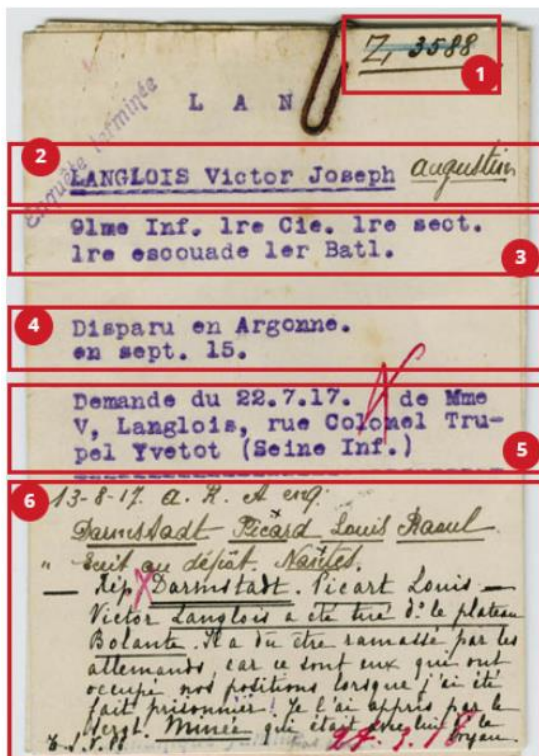 Z, 3588
1
L A N
Enquête terminée
2
LANGLOIS Victor Joseph Augustin
91me Inf. 1re Cie. 1re sect.
1re escouade 1er Batl.
3
4
Disparu en Argonne.
en sept. 15.
Demande du 22.7.17. de Mme
V, Langlois, rue Colonel Tru-
pel Yvetot (Seine Inf.)
5
6
13-8-17. A. R. A enq.
Darmstadt Picard Louis Raoul
" Ecrit au dépôt. Nantes.
— Rép X Darmstadt. Picart Louis —
Victor Langlois a été tué ds le plateau
Bolante. Il a du être ramassé par les
allemands car ce sont eux qui ont
occupé nos positions lorsque j'ai été
fait prisonnier! Je l'ai appris par le
sergt. Minée qui était avec lui ds le
boyau.